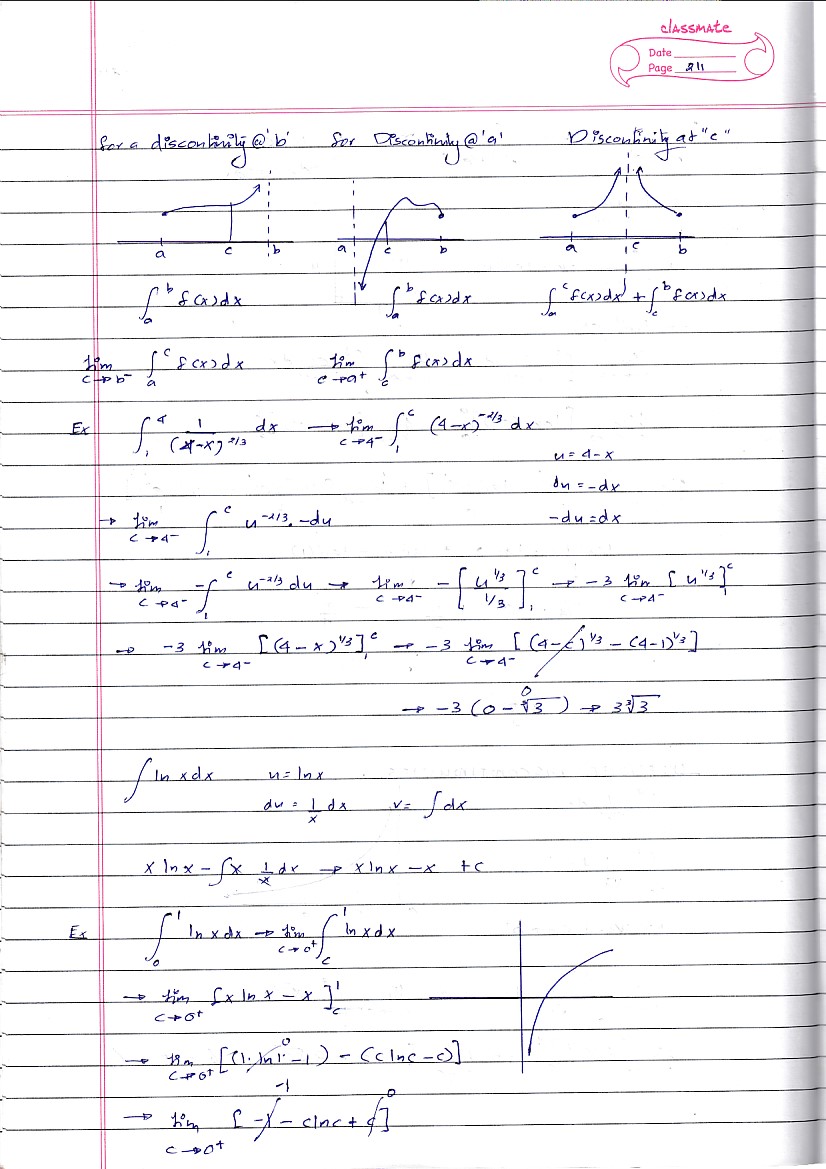 classmate
Date
Page 211
for a discontinuity @ 'b' for Discontinuity @ 'a' Discontinuity at "c"
a c b a c b a c b
∫_a^b f(x)dx ∫_a^b f(x)dx ∫_a^c f(x)dx + ∫_c^b f(x)dx
lim_{c→b⁻} ∫_a^c f(x)dx lim_{c→a⁺} ∫_c^b f(x)dx
Ex ∫_1^4 1/(4-x)^{2/3} dx → lim_{c→4⁻} ∫_1^c (4-x)^{-2/3} dx
u = 4-x
du = -dx
→ lim_{c→4⁻} ∫_1^c u^{-2/3}. -du -du = dx
→ lim_{c→4⁻} -∫_1^c u^{-2/3} du → lim_{c→4⁻} -[u^{1/3}/(1/3)]_1^c → -3 lim_{c→4⁻} [u^{1/3}]_1^c
→ -3 lim_{c→4⁻} [(4-x)^{1/3}]_1^c → -3 lim_{c→4⁻} [(4-c)^{1/3} - (4-1)^{1/3}]
0
→ -3 (0 - ∛3) → 3∛3
∫ ln x dx u = ln x
du = 1/x dx v = ∫dx
x ln x - ∫x 1/x dx → x ln x - x + c
Ex ∫_0^1 ln x dx → lim_{c→0⁺} ∫_c^1 ln x dx
→ lim_{c→0⁺} [x ln x - x]_c^1
0
→ lim_{c→0⁺} [(1. ln 1 - 1) - (c ln c - c)]
-1 0
→ lim_{c→0⁺} [-1 - c ln c + c]